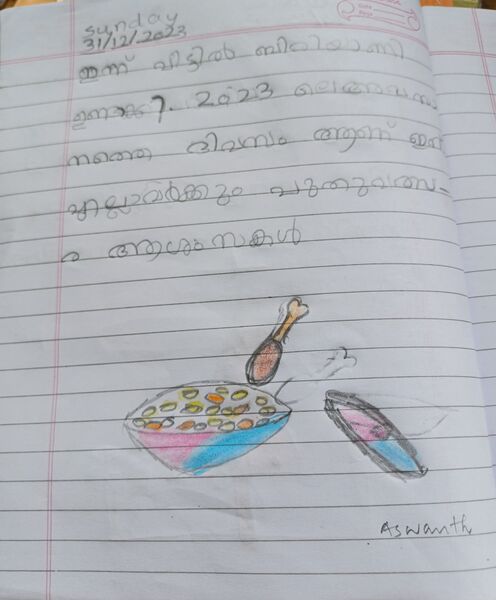 sunday
31/12/2023
ഇന്ന് വീട്ടിൽ ബിരിയാണി
ഉണ്ടാക്കി. 2023 ലെ അവസാ
നത്തെ ദിവസം ആണ് ഇന്ന്
എല്ലാവർക്കും പുതുവത്സ-
ര ആശംസകൾ
Aswanth